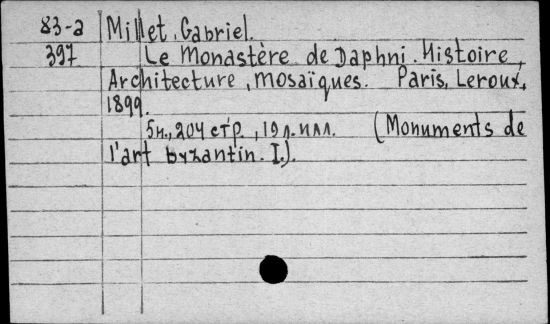 83-a Millet, Gabriel.
397 Le Monastère de Daphni. Histoire,
Architecture, mosaïques. Paris, Leroux,
1899.
5н., 204 стр., 19 л. илл. (Monuments de
l'art byzantin. I.).